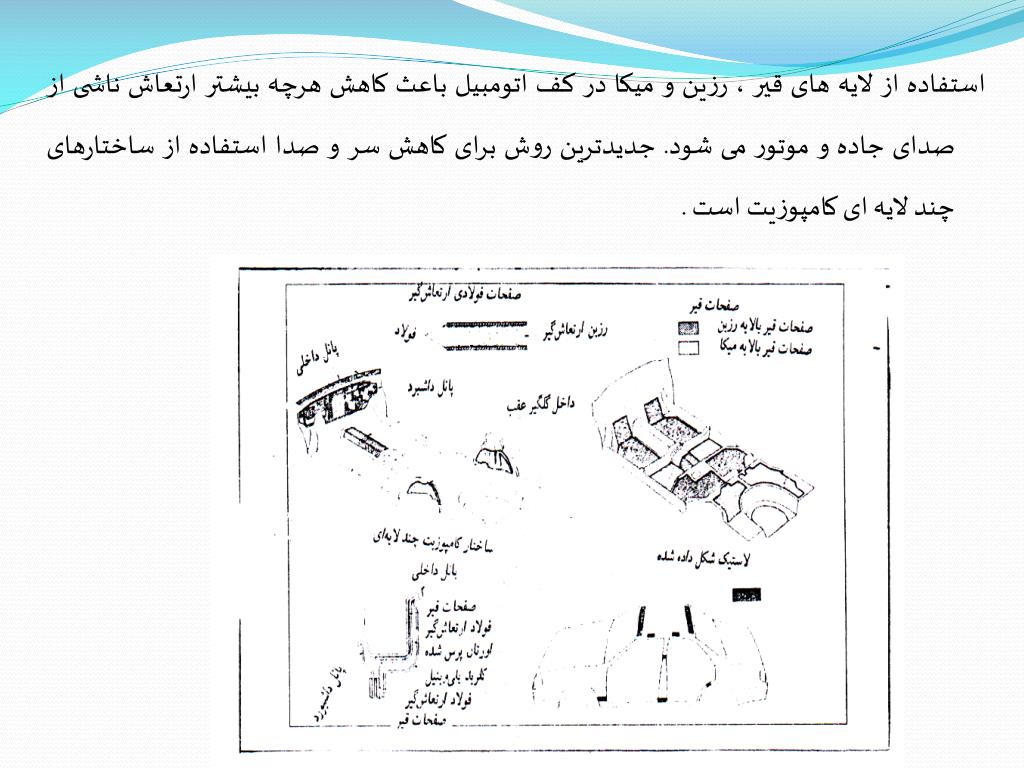 استفاده از لایه های قیر ، رزین و میکا در کف اتومبیل باعث کاهش هرچه بیشتر ارتعاش ناشی از
صدای جاده و موتور می شود. جدیدترین روش برای کاهش سر و صدا استفاده از ساختارهای
چند لایه ای کامپوزیت است .
صفحات قیر
صفحات قیر بالایه رزین
صفحات قیر بالایه میکا
صفحات فولادی ارتعاش‌گیر
رزین ارتعاش‌گیر
فولاد
پانل داخلی
پانل داشبرد
داخل گلگیر عقب
لاستیک شکل داده شده
ساختار کامپوزیت چند لایه‌ای
پانل داخلی
صفحات قیر
فولاد ارتعاش‌گیر
اورتان پرس شده
کلرید پلی‌وینیل
فولاد ارتعاش‌گیر
صفحات قیر
پانل داشبورد